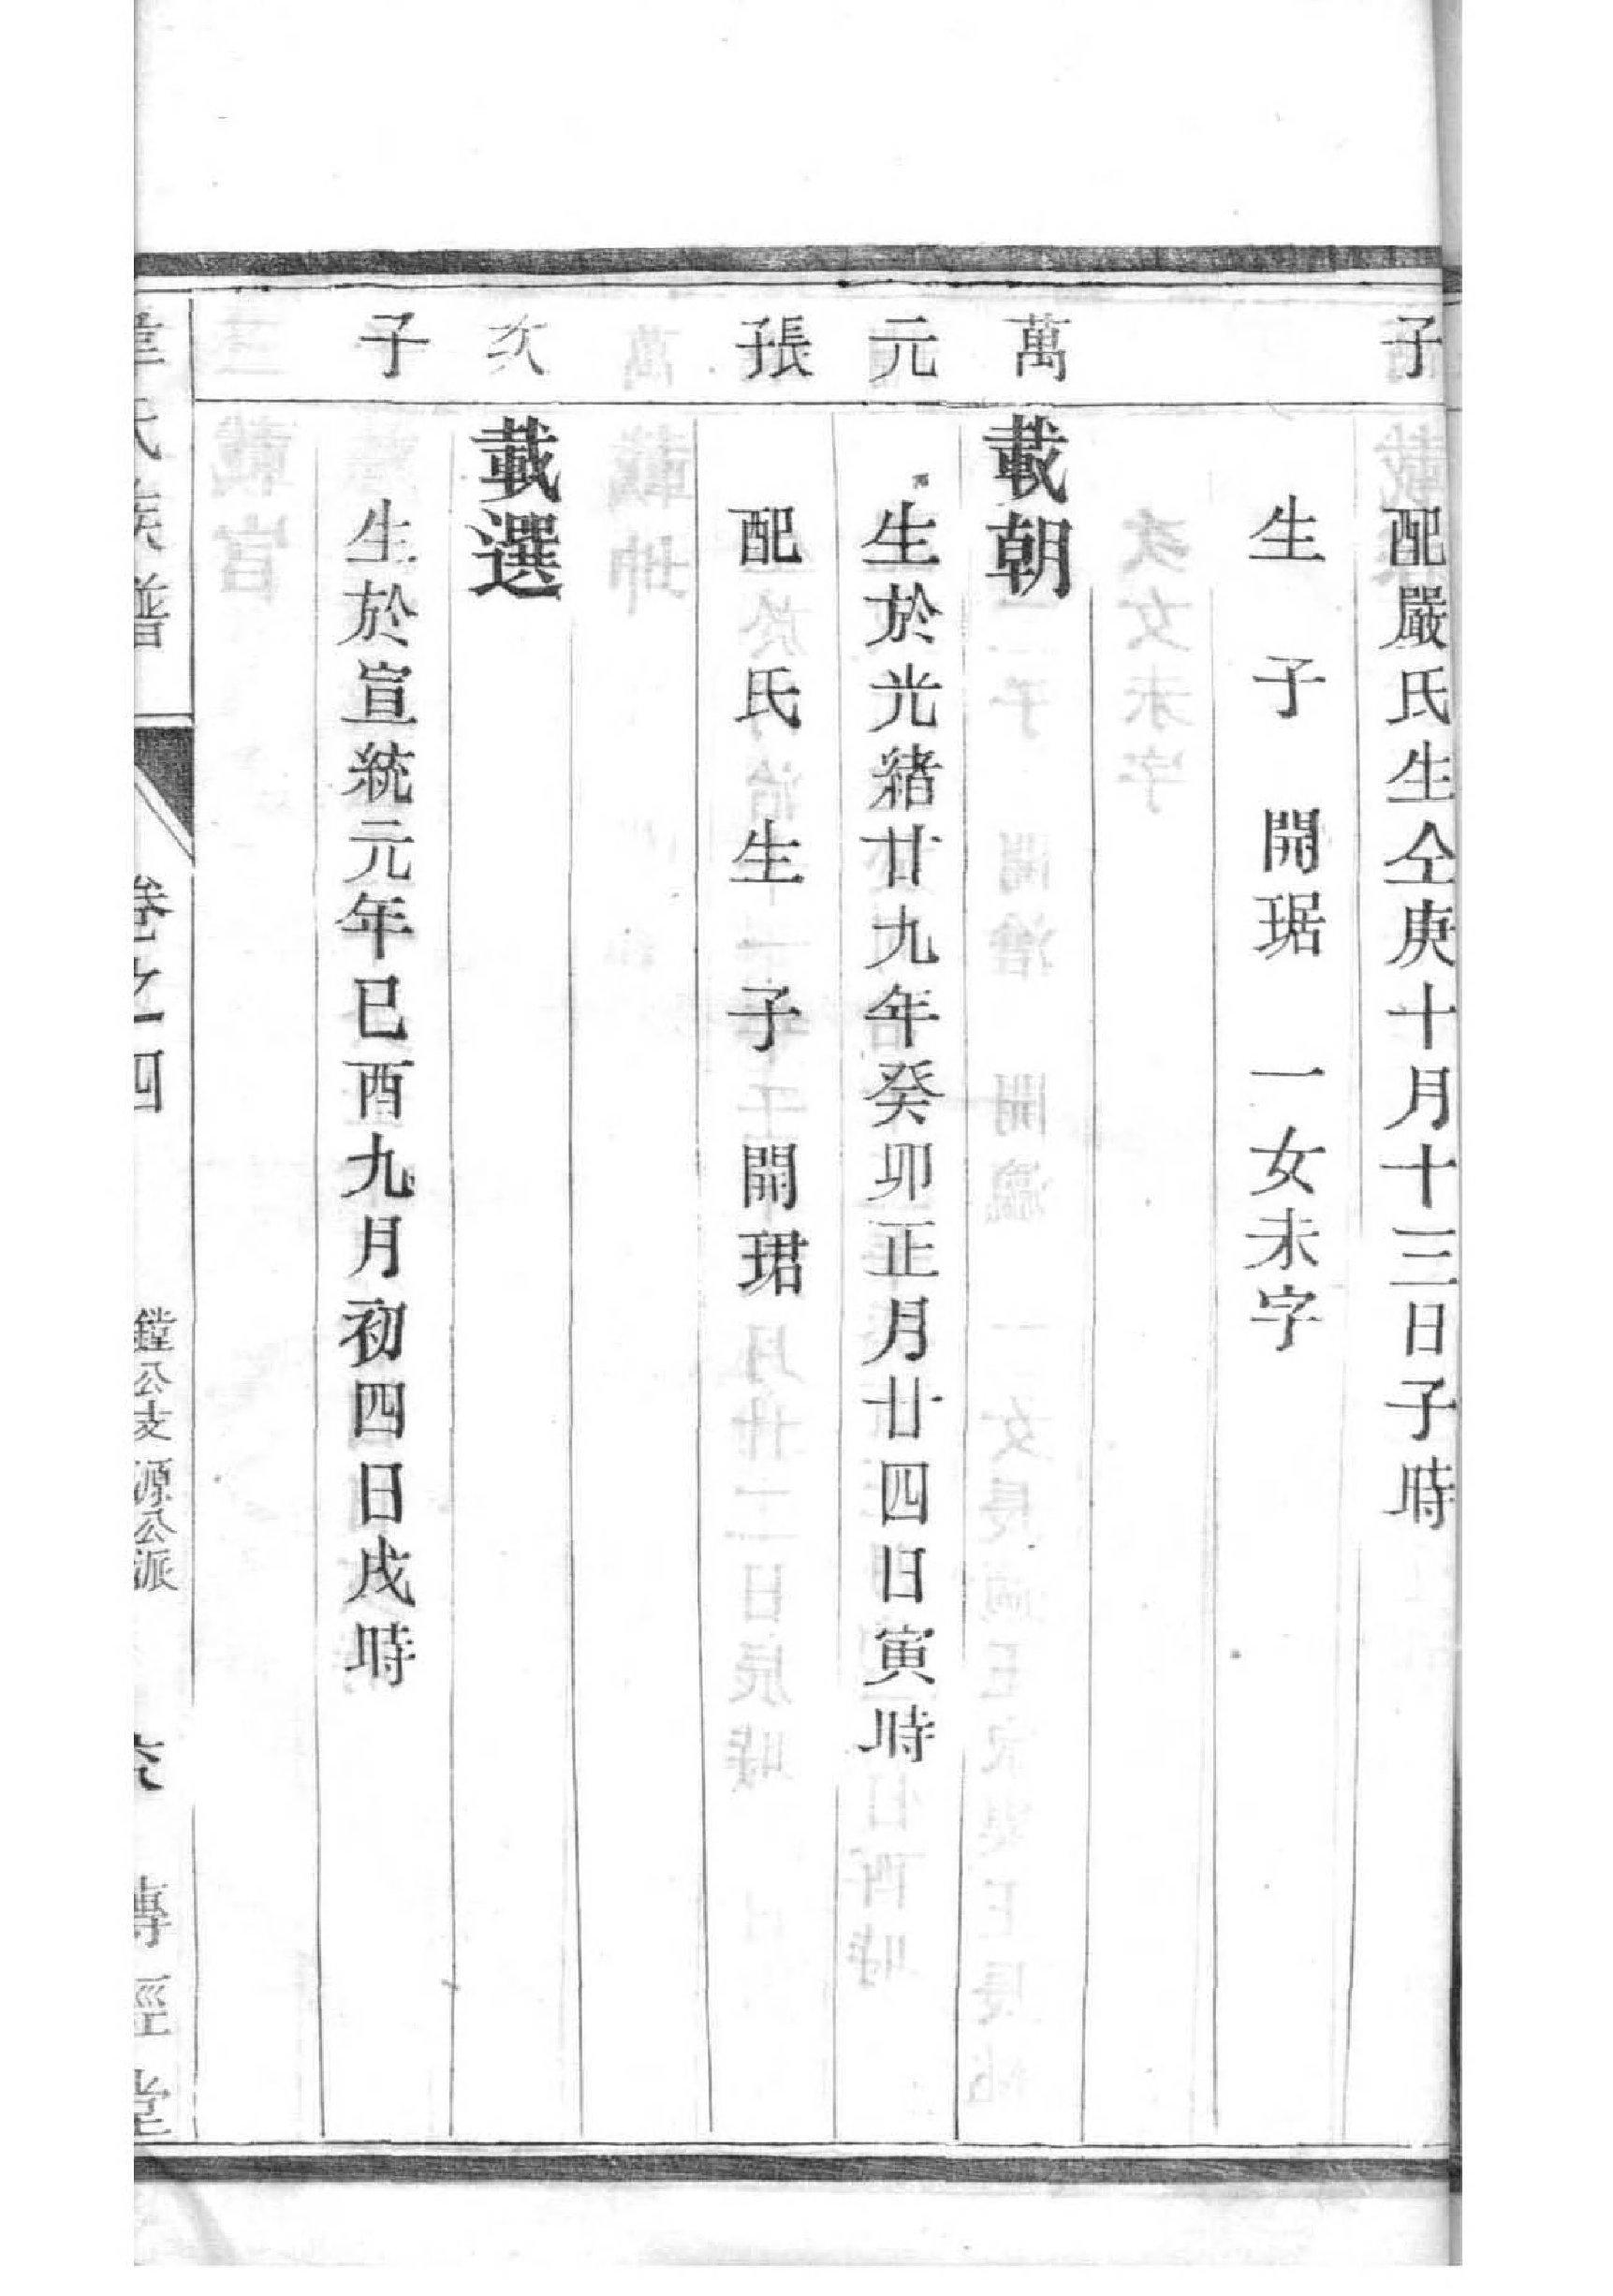 子
配嚴氏生仝庚十月十三日子時
生　子　開琚　一女未字
萬
載朝
元
生於光緒廿九年癸卯正月廿四日寅時
張子
配　氏　生　子　開珺
次
載選
子
生於宣統元年已酉九月初四日戌時
氏族譜
卷之四
鏜公支源公派
六
傳經堂